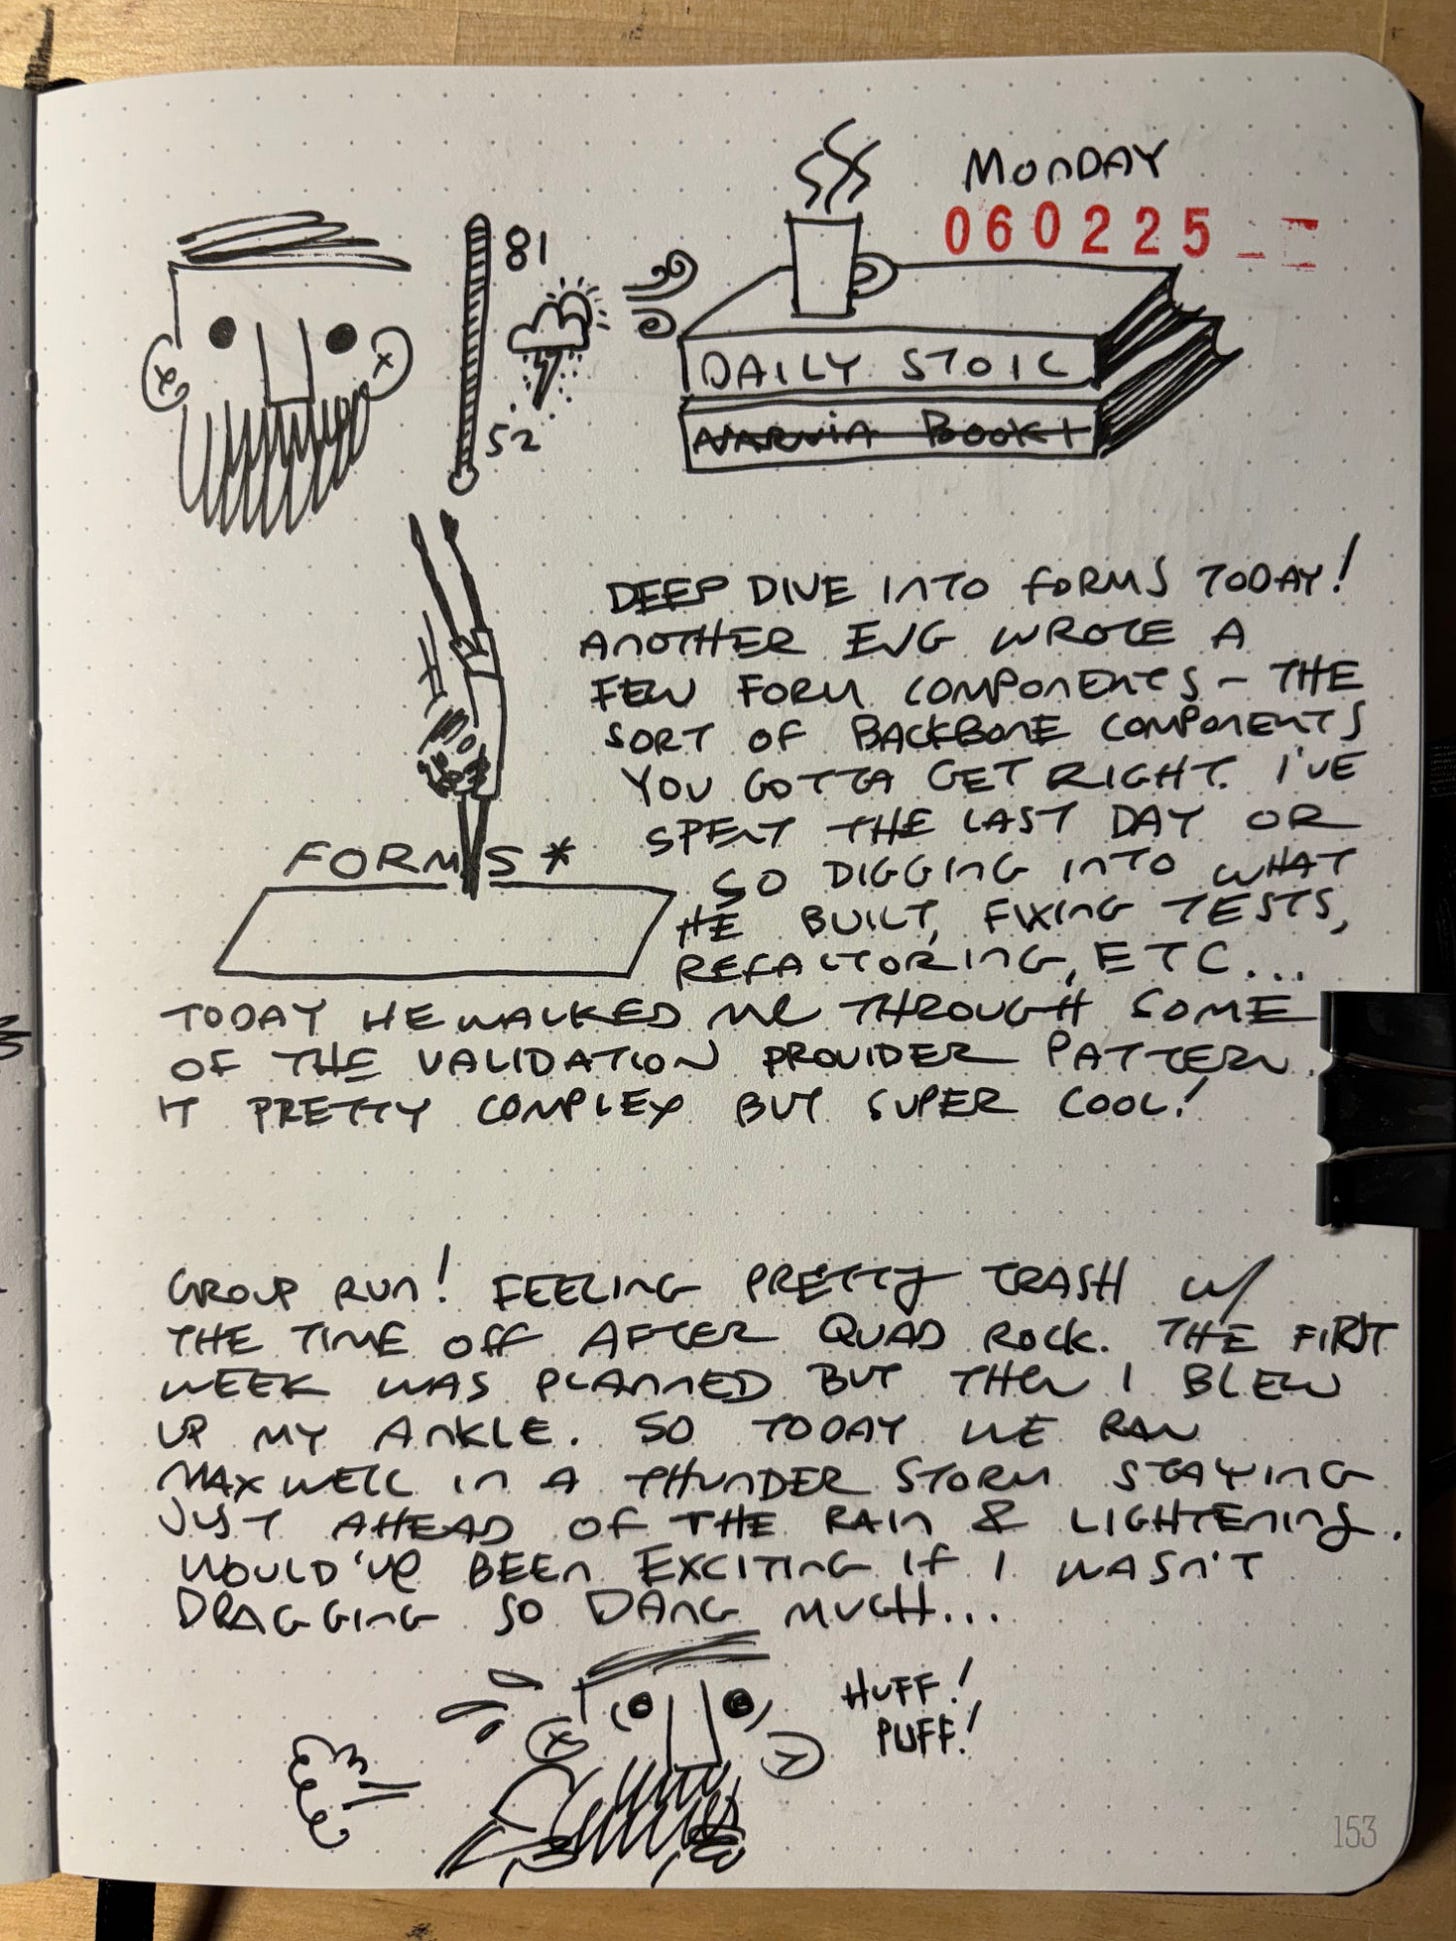 MONDAY
060225
81
52
DAILY STOIC
NARNIA BOOK 1
FORMS*
DEEP DIVE INTO FORMS TODAY!
ANOTHER ENG WROTE A
FEW FORM COMPONENTS - THE
SORT OF BACKBONE COMPONENTS
YOU GOTTA GET RIGHT. I'VE
SPENT THE LAST DAY OR
SO DIGGING INTO WHAT
HE BUILT, FIXING TESTS,
REFACTORING, ETC...
TODAY HE WALKED ME THROUGH SOME
OF THE VALIDATION PROVIDER PATTERN.
IT PRETTY COMPLEX BUT SUPER COOL!
GROUP RUN! FEELING PRETTY TRASH W/
THE TIME OFF AFTER QUAD ROCK. THE FIRST
WEEK WAS PLANNED BUT THEN I BLEW
UP MY ANKLE. SO TODAY WE RAN
MAXWELL IN A THUNDER STORM STAYING
JUST AHEAD OF THE RAIN & LIGHTENING.
WOULD'VE BEEN EXCITING IF I WASN'T
DRAGGING SO DANG MUCH...
HUFF!
PUFF!
153